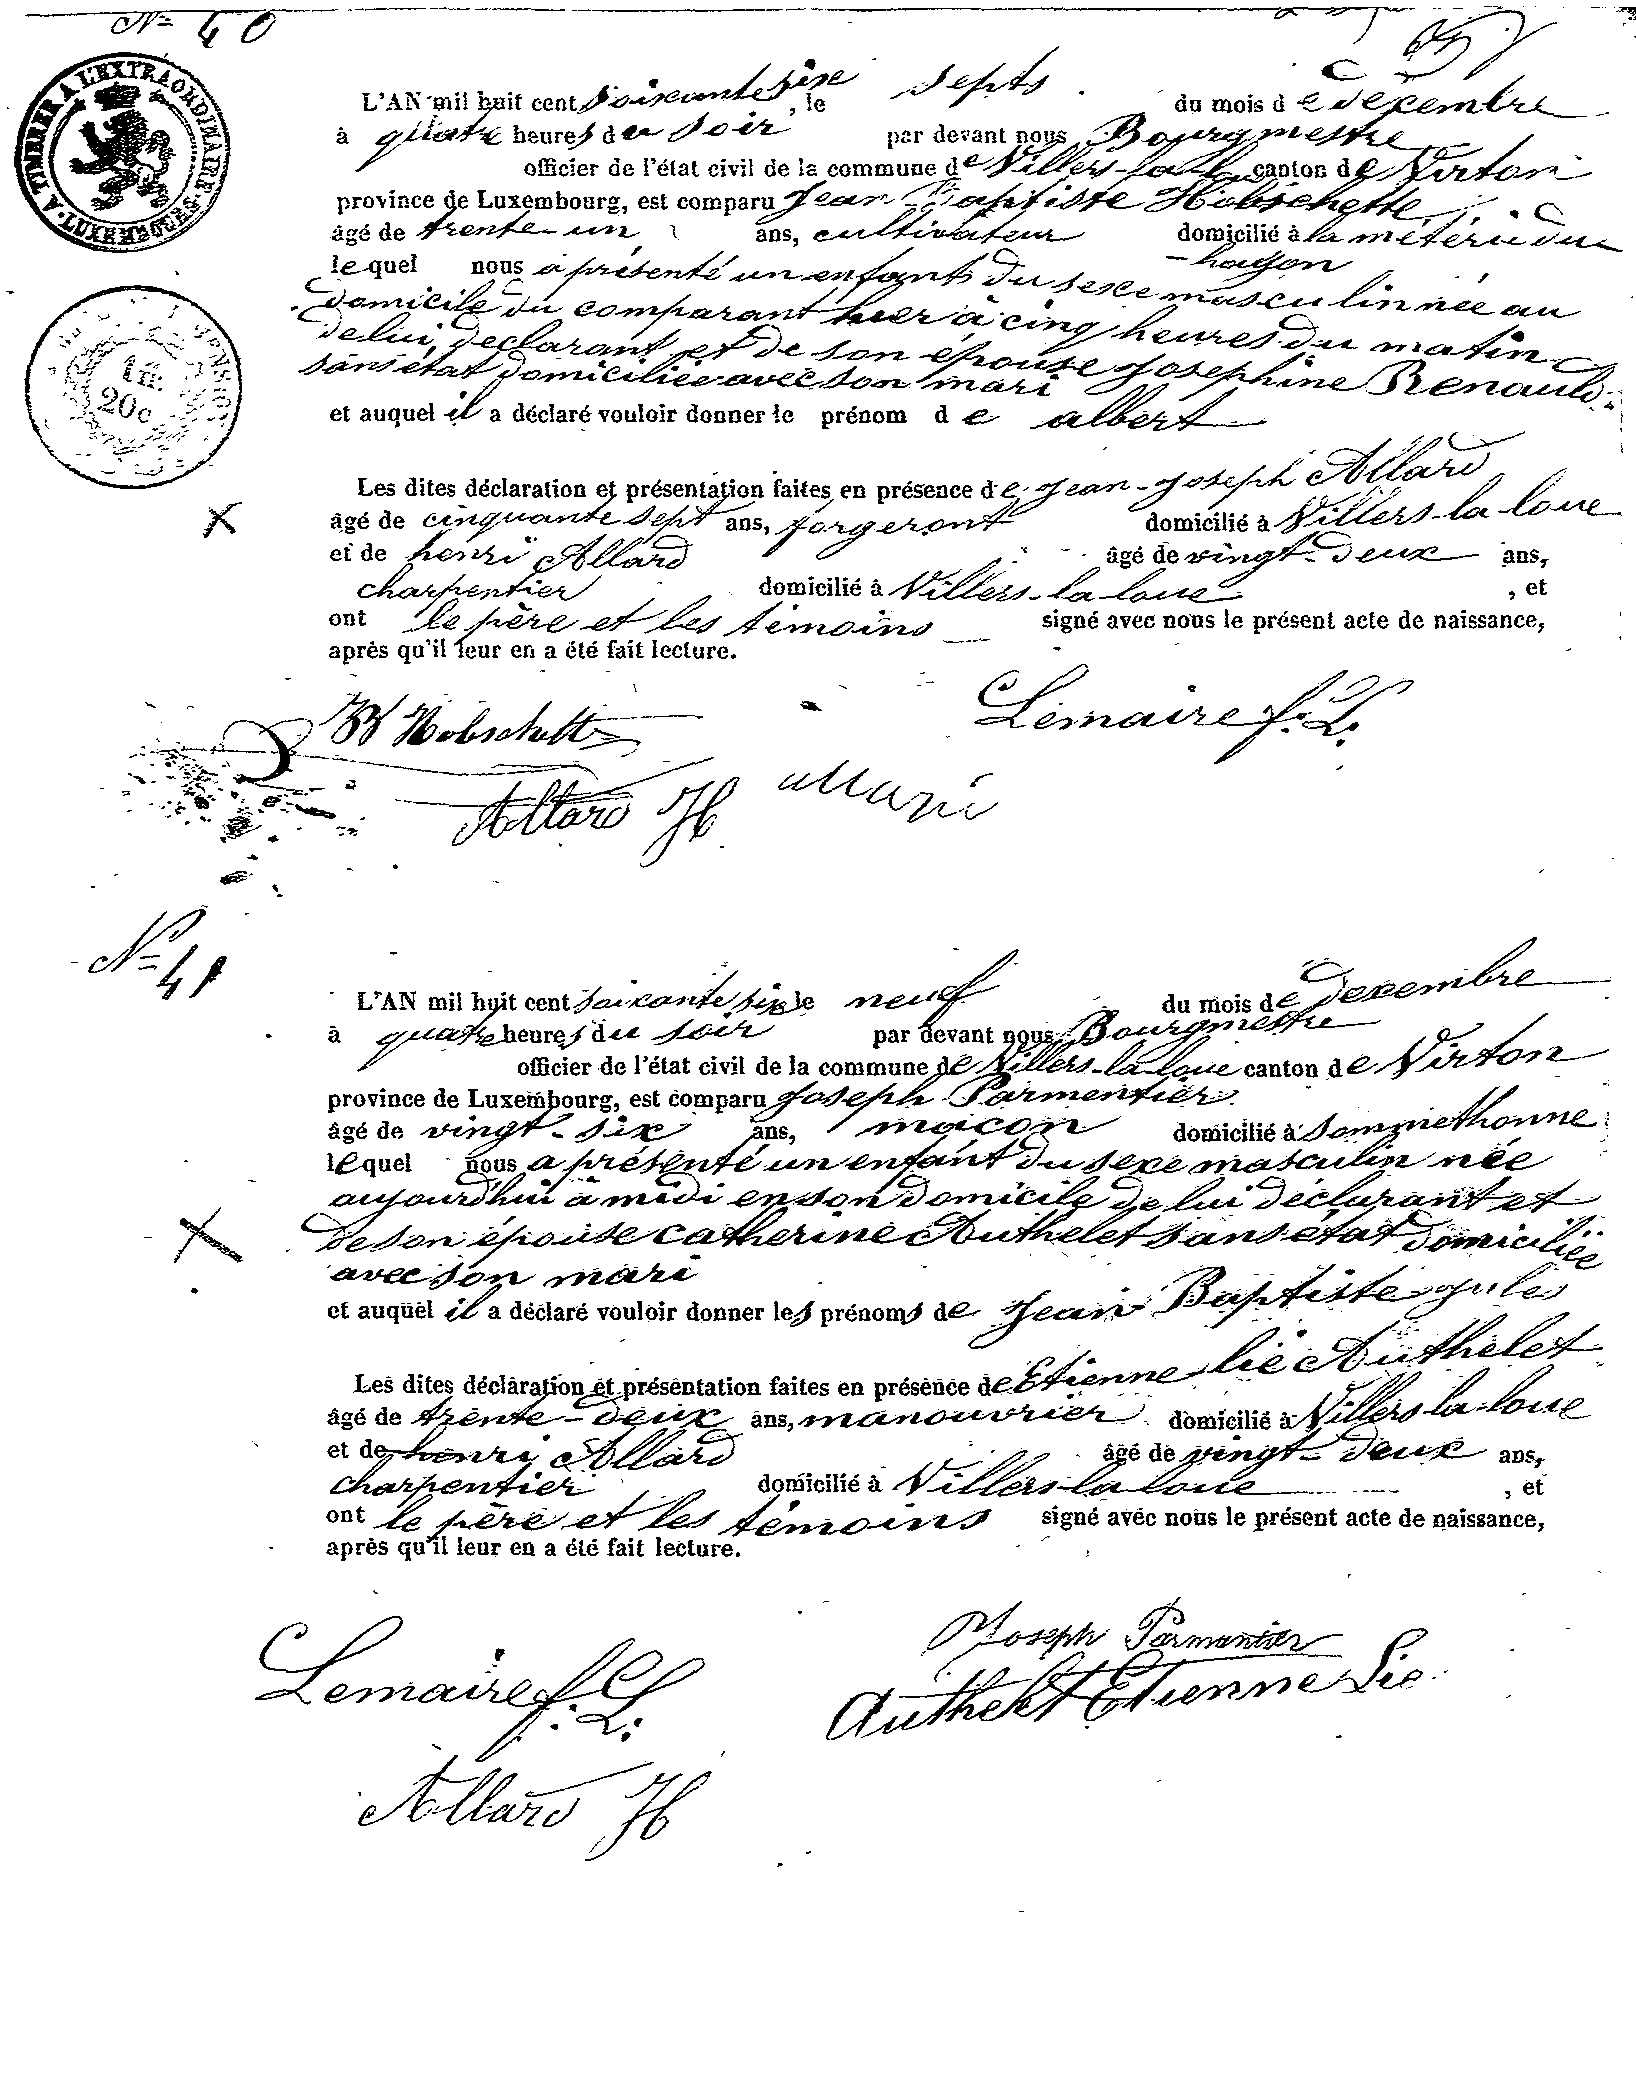 N= 40
A TIMBRER A L'EXTRAORDINAIRE. LUXEMBOURG.
1 fr.
20c
L'AN mil huit cent soixante sixe, le septs du mois de decembre
à quatre heures du soir par devant nous Bourgmestre
officier de l'état civil de la commune de Villers-la-l canton de Virton
province de Luxembourg, est comparu Jean Baptiste Hobschette
âgé de trente-un ans, cultivateur domicilié à la méterie du
-hayon
lequel nous a présenté un enfant du sexe masculin née au
domicile du comparant hier à cinq heures du matin
de lui, declarant et de son épouse Josephine Renauld
sans état domiciliée avec son mari
et auquel il a déclaré vouloir donner le prénom de albert
Les dites déclaration et présentation faites en présence de Jean-Joseph Allard
âgé de cinquante sept ans, forgeront domicilié à Villers-la-loue
et de henri Allard âgé de vingt-deux ans,
charpentier domicilié à Villers-la-loue, et
ont le père et les témoins signé avec nous le présent acte de naissance,
après qu'il leur en a été fait lecture.
Hobschette
Lemaire f. L.
Allard H
N= 41
L'AN mil huit cent soixante six le neuf du mois de decembre
à quatre heures du soir par devant nous Bourgmestre
officier de l'état civil de la commune de Villers-la-loue canton de Virton
province de Luxembourg, est comparu Joseph Parmentier
âgé de vingt-six ans, macon domicilié à Sommethonne
lequel nous a présenté un enfant du sexe masculin née
aujourd'hui à midi en son domicile de lui déclarant et
de son épouse catherine Authelet sans état domiciliée
avec son mari
et auquel il a déclaré vouloir donner les prénoms de Jean Baptiste jules
Les dites déclaration et présentation faites en présence de Etienne lié Authelet
âgé de trente-deux ans, manouvrier domicilié à Villers la-loue
et de henri Allard âgé de vingt-deux ans,
charpentier domicilié à Villers-la-loue, et
ont le père et les témoins signé avec nous le présent acte de naissance,
après qu'il leur en a été fait lecture.
Joseph Parmentier
Lemaire f. L.
Authelet Etienne Lie
Allard H